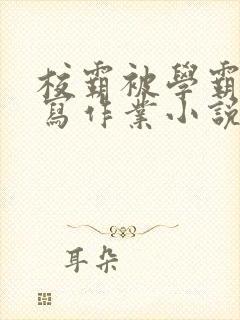 校霸被學霸
寫作業小說
耳朵